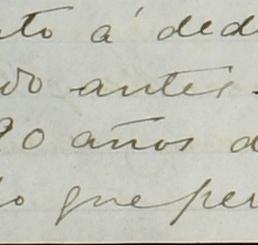 nto á ded
do antes
90 años d
lo que per